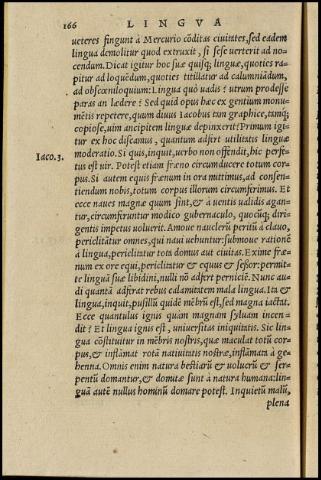 166 LINGVA
ueteres fingunt à Mercurio cõditas ciuitates, sed eadem
lingua demolitur quod extruxit, si sese uerterit ad no-
cendum. Dicat igitur hoc suæ quisq; linguæ, quoties ra-
pitur ad loquẽdum, quoties titillatur ad calumniãdum,
ad obscœniloquium: Lingua quò uadis? utrum prodesse
paras an lædere? Sed quid opus hæc ex gentium monu-
mẽtis repetere, quum diuus Iacobus tam graphice, tamq;
copiose, uim ancipitem linguæ depinxerit? Primum igi-
tur ex hoc discamus, quantum adfert utilitatis linguæ
moderatio. Si quis, inquit, uerbo non offendit, hic perfe-
Iaco.3. ctus est uir. Potest etiam fræno circumducere totum cor-
pus. Si autem equis frænum in ora mittimus, ad consen-
tiendum nobis, totum corpus illorum circumferimus. Et
ecce naues magnæ quum sint, & à uentis ualidis agan-
tur, circumferuntur modico gubernaculo, quocũq; diri-
gentis impetus uoluerit. Amoue nauclerũ peritũ à clauo,
periclitãtur omnes, qui naui uehuntur: submoue rationẽ
à lingua, periclitatur tota domus aut ciuitas. Exime fræ-
num ex ore equi, periclitatur & equus & sessor: permit-
te linguã suæ libidini, nulli nõ adfert perniciẽ. Nunc au-
di quantã adferat rebus calamitatem mala lingua. Ita &
lingua, inquit, pusillũ quidẽ mẽbrũ est, sed magna iactat.
Ecce quantulus ignis quàm magnam syluam incen-
dit? Et lingua ignis est, uniuersitas iniquitatis. Sic lin-
gua cõstituitur in mẽbris nostris, quæ maculat totũ cor-
pus, & inflãmat rotã natiuitatis nostræ, inflãmata à ge-
henna. Omnis enim natura bestiarũ & uolucrũ & ser-
pentũ domantur, & domitæ sunt à natura humana: lin-
guã autẽ nullus hominũ domare potest. Inquietũ malũ,
plena